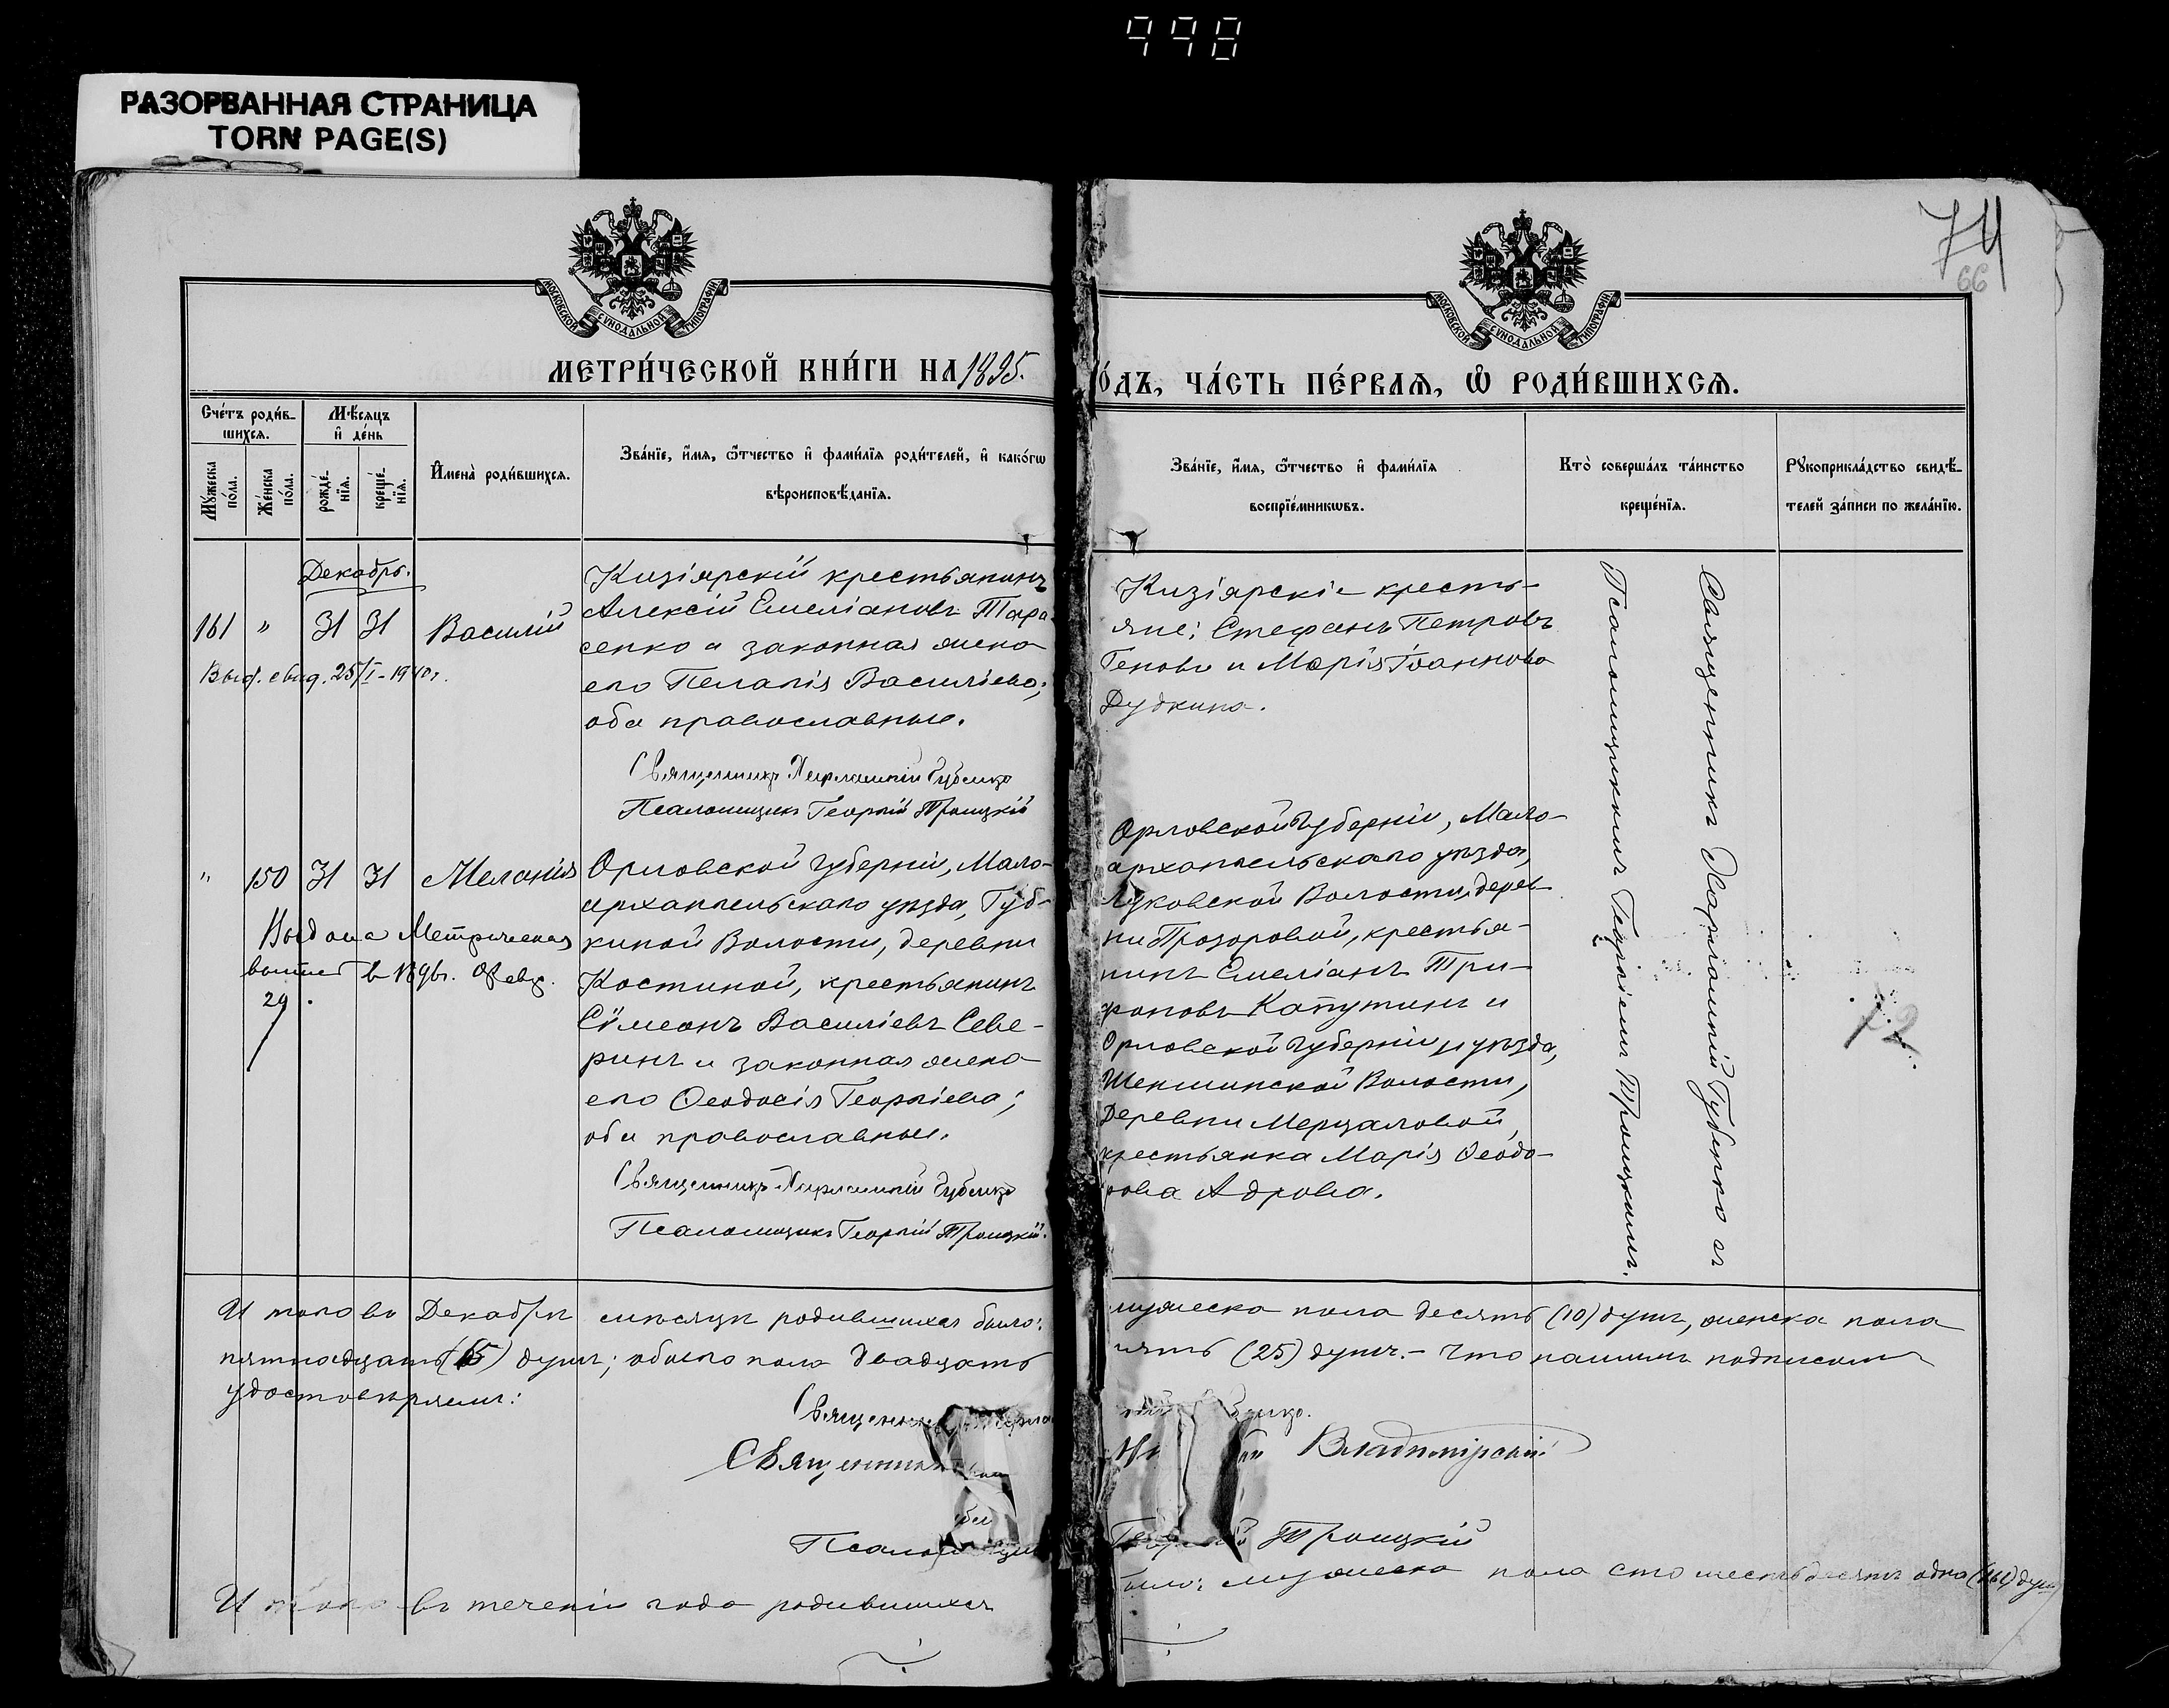 998
РАЗОРВАННАЯ СТРАНИЦА
TORN PAGE(S)
74
66
МОСКОВСКОЙ СѴНОДАЛЬНОЙ ТИПОГРАФІИ
МОСКОВСКОЙ СѴНОДАЛЬНОЙ ТИПОГРАФІИ
МЕТРИ́ЧЕСКОЙ КНИ́ГИ НА 1895.
О́ДЪ, ЧА́СТЬ ПЕ́РВАѦ, Ѽ РОДИ́ВШИХСѦ.
Сче́тъ роди́в-
шихсѧ.
Мꙋ́жеска
по́ла.
Же́нска
по́ла.
Мѣ́сѧцъ
и҆ де́нь
рожде́-
нїѧ.
креще́-
нїѧ.
И҆мена̀ роди́вшихсѧ.
Зва́нїе, и҆́мѧ, ѻ҆́тчество и҆ фами́лїѧ роди́телей, и҆ како́гѡ
вѣроисповѣ́данїѧ.
Зва́нїе, и҆́мѧ, ѻ҆́тчество и҆ фами́лїѧ
воспрїе́мникѡвъ.
Кто̀ соверша́лъ та́инство
креще́нїѧ.
Рꙋкоприкла́дство свидѣ́-
телей за́писи по жела́нїю.
Декабрь.
161 " 31 31 Василій
Выд. свид. 25/I-1940г.
Кизіярскій крестьянинъ
Алексій Емеліановъ Тара-
сенко и законная жена
его Пелагія Василіева;
оба православные.
Священникъ Харлампій Губенко
Псаломщикъ Георгій Троицкій
Кизіярскіе кресть-
яне: Стефанъ Петровъ
Геновъ и Марія Іоаннова
Дудкина.
" 150 31 31 Меланія
Выдана Метрическая
в 1896г. Февр.
29.
Орловской губерніи, Мало-
архангельскаго уѣзда, Губ-
киной Волости, деревни
Костиной, крестьянинъ
Сѵмеонъ Василіевъ Севе-
ринъ и законная жена
его Ѳеодосія Георгіева;
оба православные.
Священникъ Харлампій Губенко
Псаломщикъ Георгій Троицкій.
Орловской губерніи, Мало-
архангельскаго уѣзда,
Луковской Волости, дерев-
ни Прозоровой, крестья-
нинъ Емеліанъ Три-
фоновъ Капутинъ и
Орловской губерніи и уѣзда,
Шеншинской Волости,
Деревни Мерцаловой,
крестьянка Марія Ѳеодо-
рова Адрова.
Священникъ Харлампій Губенко съ
Псаломщикомъ Георгіемъ Троицкимъ.
72
Итого въ Декабрѣ мѣсяцѣ родившихся было: мужеска пола десять (10) душъ, женска пола
пятнадцать (15) душъ; обоего пола двадцать пять (25) душъ. - Что нашимъ подписомъ
удостовѣряемъ:
Священникъ
Священникъ Владимірскій
Псаломщикъ Георгій Троицкій
Итого въ теченіи года родившихся было: мужеска пола сто шестьдесятъ одна (161) душ